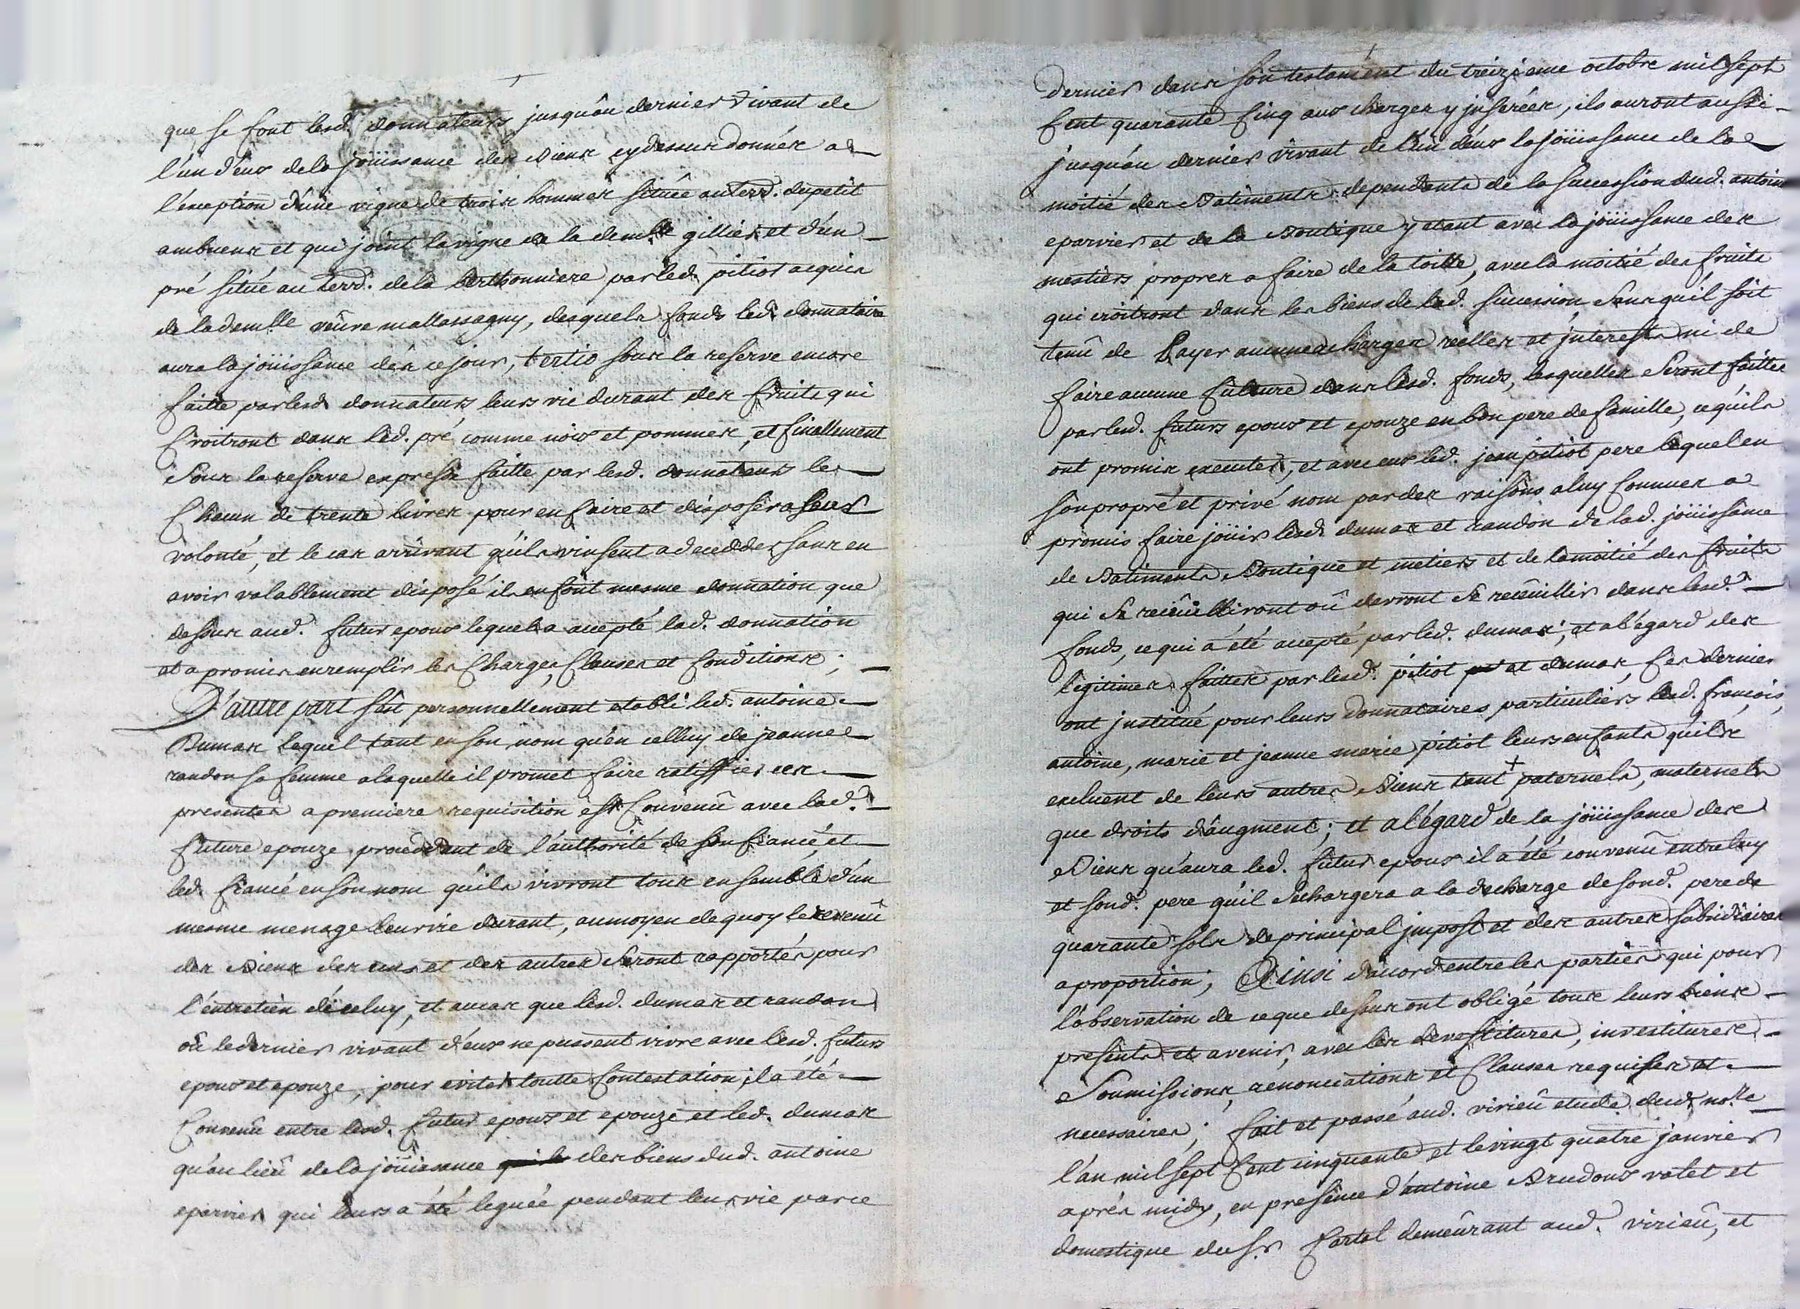 que se font lesd. donnateurs jusqu'au dernier vivant de
l'un d'eux de la joüissance des Biens cy dessus donnés a
l'exception d'une vigne de trois hommes située au terr. du petit
ambueux et qui joint la vigne de la demlle gillier et d'un
pré situé au terr. de la berthonniere par led. pitiot acquis
de la demlle veuve mallassagny, desquels fonds led. donnataire
aura la joüissance dès ce jour, tertio sous la reserve encore
faitte par lesd. donnateurs leurs vie durant des fruits qui
Croitront dans led. pré comme noix et pommes, et finallement
sous la reserve expresse faitte par lesd. donnateurs de
Chacun de trente livres pour en faire et disposer a leurs
volonté, et le cas arrivant qu'ils vinsent a deceder sans en
avoir valablement disposé ils en font mesme donnation que
dessus aud. futur epoux lequel a accepté lad. donnation
et a promis en remplir les Charges, Clauses et Conditions;
D'autre part s'est personnellement etabli led. antoine
Dumas lequel tant en son nom qu'en celluy de jeanne
randon sa femme a laquelle il promet faire ratiffier ces
presentes a premiere requisition est Convenû avec lad.
future epouze procedant de l'authorité de son fiancé et
led. fiancé en son nom qu'ils vivront tous ensemble d'un
mesme menage leur vie durant, au moyen de quoy le revenû
des Biens des uns et des autres seront rapportés pour
l'entretien d'iceluy, et au cas que lesd. dumas et randon
oû le dernier vivant d'eux ne pussent vivre avec lesd. futurs
epoux et epouze, pour eviter toutte Contestation il a été
Convenû entre lesd. futur epoux et epouze et led. dumas
qu'au lieû de la joüissance des biens dud. antoine
epervier qui leurs a été leguée pendant leur vie par ce
dernier dans son testament du treizieme octobre mil sept
Cent quarante Cinq aux charges y inserées, ils auront aussi
jusqu'au dernier vivant de l'un d'eux la joüissance de la
moitié des Batiments dependants de la succession dud. antoine
epervier et de la Boutique y etant avec la joüissance des
mestiers propres a faire de la toille, avec la moitié des fruits
qui croitront dans les biens de lad. succession sans qu'il soit
tenû de Payer aucunes charges réelles et interests ni de
faire aucune Culture dans lesd. fonds, lesquelles seront faittes
par lesd. futurs epoux et epouze en bon pere de famille, ce qu'ils
ont promis executer, et avec eux led. jean pitiot pere lequel en
son propre et privé nom par des raisons a luy Connues a
promis faire joüir lesd. dumas et randon de lad. joüissance
de Batiments Boutique et metiers et de la moitié des fruits
qui se recüeilliront oû devront se recüeillir dans lesd.
fonds, ce qui a été accepté par led. dumas; et a l'égard des
legitimes faittes par lesd. pitiot et dumas, ces dernier
ont justitué pour leurs donnataires particuliers lesd. françois,
antoine, marie et jeanne marie pitiot leurs enfants qu'ils
excluent de leurs autres Biens tant + paternels, maternels
que droits d'augment; et a l'égard de la joüissance des
Biens qu'aura led. futur epoux il a été convenû entre luy
et sond. pere qu'il se chargera a la decharge de sond. pere de
quarante sols de principal impost et des autres subsidiaires
a proportion; Ainsi d'accord entre les parties qui pour
l'observation de ce que dessus ont obligé tous leurs biens
presents et avenir, avec les devestitures, investitures
soumissions, renonciations et Clauses requises et
necessaires; fait et passé aud. virieû etude dud. nore
l'an mil sept Cent cinquante et le vingt quatre janvier
après midy, en presence d'antoine Brudoux valet et
domestique du sr Cartal demeûrant aud. virieû, et